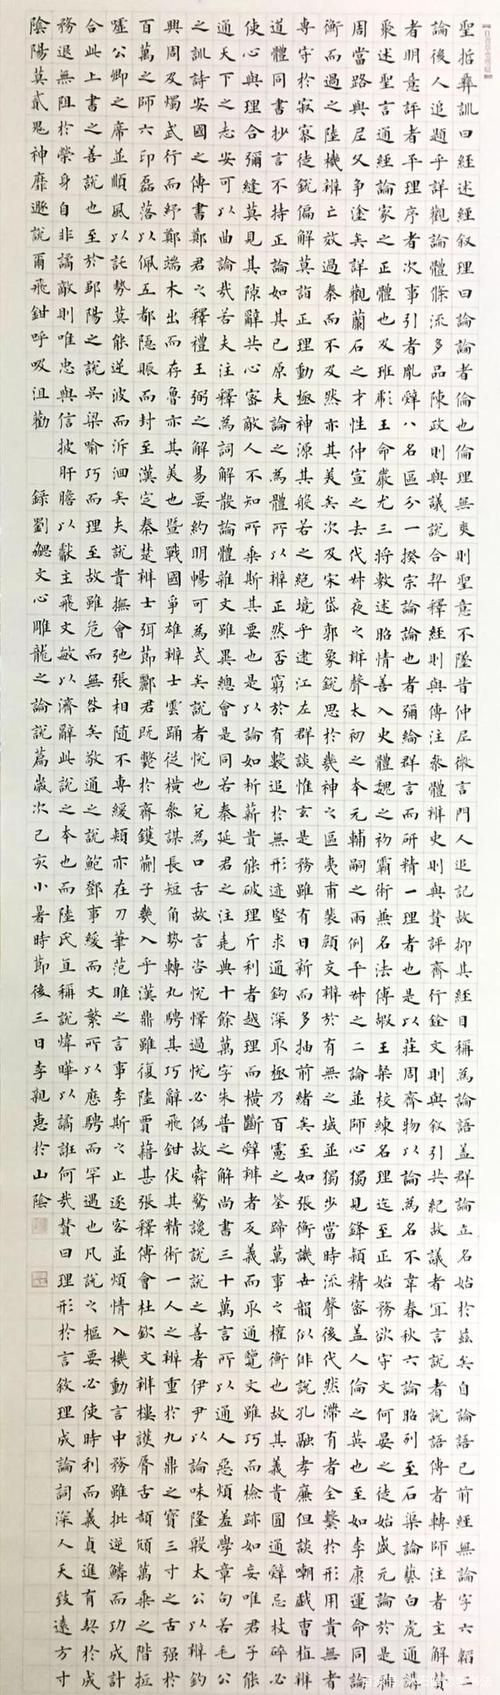 聖哲彝訓曰經述經叙理曰論論者倫也倫理無爽則聖意不墜昔仲尼微言門人追記故抑其經目稱為論語蓋群論立名始於茲矣自論語已前經無論字六韜二
論後人追題乎詳觀論體條流多品陳政則與議說合契釋經則與傳注參體辨史則與贊評齊行銓文則與叙引共紀故議者宜言說者說語傳者轉師注者主解贊
者明意評者平理序者次事引者胤辭八名區分一揆宗論論也者彌綸群言而研精一理者也是以莊周齊物以論為名不韋春秋六論昭列至石渠論藝白虎通講
聚述聖言通經論家之正體也及班彪王命嚴尤三將敷述昭情善入史體魏之初霸術兼名法傅嘏王粲校練名理迄至正始務欲守文何晏之徒始盛元論於是聃
周當路與尼父爭塗矣詳觀蘭石之才性仲宣之去代叔夜之辨聲太初之本元輔嗣之兩例平叔之二論並師心獨見鋒穎精密蓋人倫之英也至如李康運命同論
衡而過之陸機辨亡效過秦而不及然亦其美矣次及宋岱郭象銳思於幾神之區夷甫裴頠交辨於有無之域並獨步當時流聲後代然滯有者全繫於形用貴無者
專守於寂寥徒銳偏解莫詣正理動極神源其般若之絕境乎逮江左群談惟玄是務雖有日新而多抽前緒矣至如張衡譏世韻似俳說孔融孝廉但談嘲戲曹植辨
道體同書抄言不持正論如其已原夫論之為體所以辨正然否窮於有數追於無形迹堅求通鈎深取極乃百慮之筌蹄萬事之權衡也故其義貴圓通辭忌枝碎必
使心與理合彌縫莫見其隙辭共心密敵人不知所乘斯其要也是以論如析薪貴能破理斤利者越理而橫斷辭辨者反義而取通覽文雖巧而檢跡如妄唯君子能
通天下之志安可以曲論哉若夫注釋為詞解散論體雜文雖異總會是同若秦延君之注堯典十餘萬字朱普之解尚書三十萬言所以通人惡煩羞學章句若毛公
之訓詩安國之傳書鄭君之釋禮王弼之解易要約明暢可為式矣說者悅也兌為口舌故言咨悅懌過悅必偽故舜驚讒說說之善者伊尹以論味隆殷太公以辨釣
興周及燭武行而紓鄭端木出而存魯亦其美也暨戰國爭雄辨士雲踊從橫參謀長短角勢轉丸騁其巧辭飛鉗伏其精術一人之辨重於九鼎之寶三寸之舌強於
百萬之師六印磊落以佩五都隱賑而封至漢定秦楚辨士弭節酈君既斃於齊鑊蒯子幾入乎漢鼎雖復陸賈藉甚張釋傅會杜欽文辨樓護脣舌頡頏萬乘之階抵
噓公卿之席並順風以託勢莫能逆波而泝洄矣夫說貴撫會弛張相隨不專緩頰亦在刀筆范雎之言事李斯之止逐客並煩情入機動言中務雖批逆鱗而功成計
合此上書之善說也至於鄒陽之說吳梁喻巧而理至故雖危而無咎矣敬通之說鮑鄧事緩而文繁所以歷騁而罕遇也凡說之樞要必使時利而義貞進有契於成
務退無阻於榮身自非譎敵則唯忠與信披肝膽以獻主飛文敏以濟辭此說之本也而陸氏直稱說煒曄以譎誑何哉贊曰理形於言敘理成論詞深人天致遠方寸
陰陽莫貳鬼神靡遯說爾飛鉗呼吸沮勸 錄劉勰文心雕龍之論說篇歲次己亥小暑時節後三日李觀惠於山陰